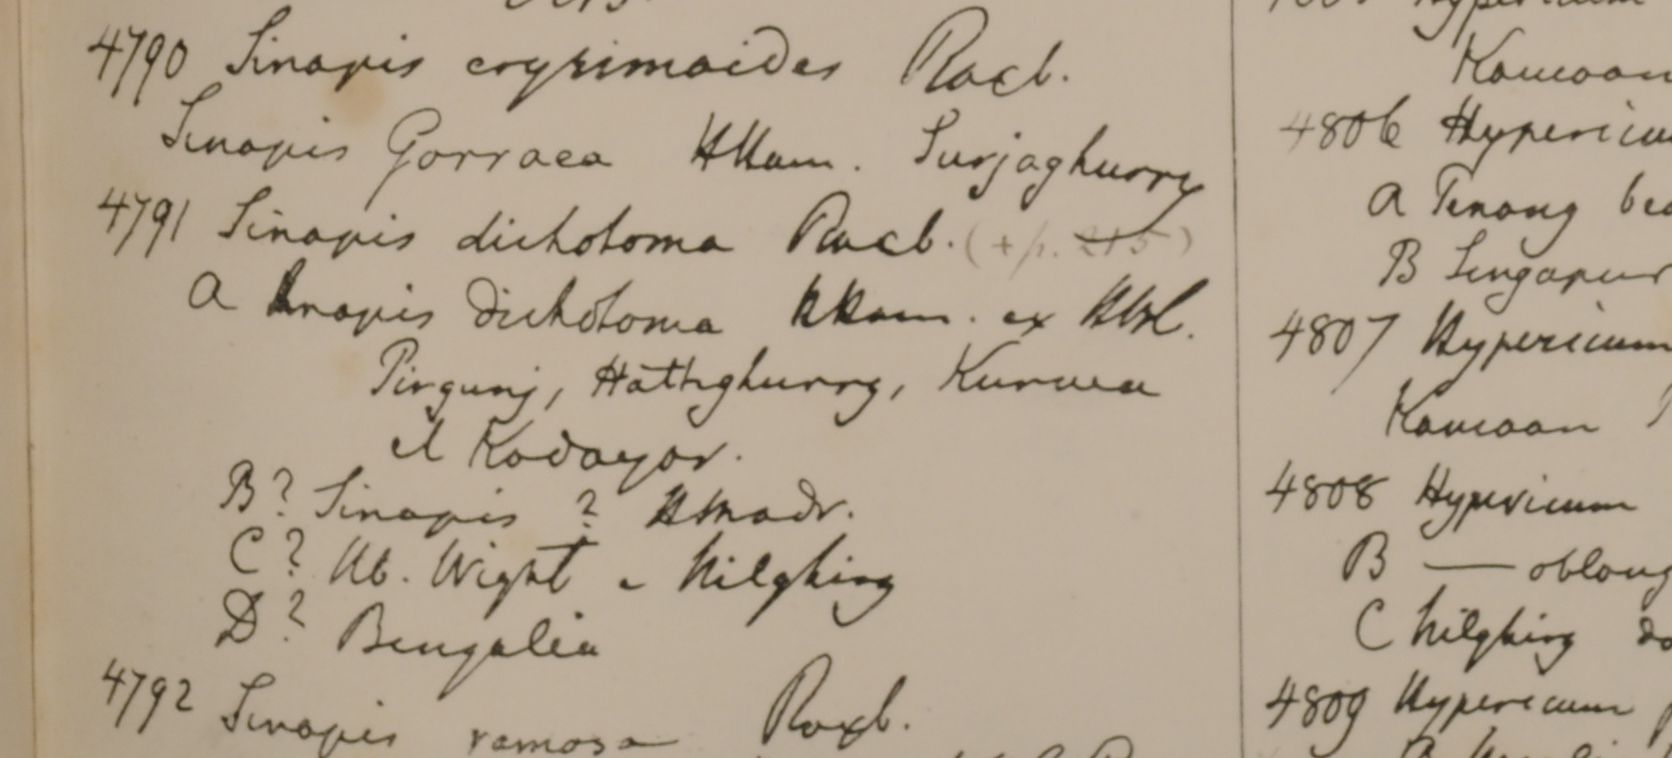 4790 Sinapis erysimoides Roxb.
Sinapis Gorraea HHam. Surjaghurry
4791 Sinapis dichotoma Roxb. (+ p. 215)
a Sinapis dichotoma HHam. ex HBC.
Pirgunj, Hattighurry, Kuruea
et Kodayor.
B? Sinapis ? HMadr.
C? Hb. Wight - Nilghiry
D? Bengalia
4792 Sinapis ramosa Roxb.
Hypericum
Kamoan
4806 Hypericum
a Penang
B Singapur
4807 Hypericum
Kamoan
4808 Hypericum
B — oblong
C Nilghiry
4809 Hypericum